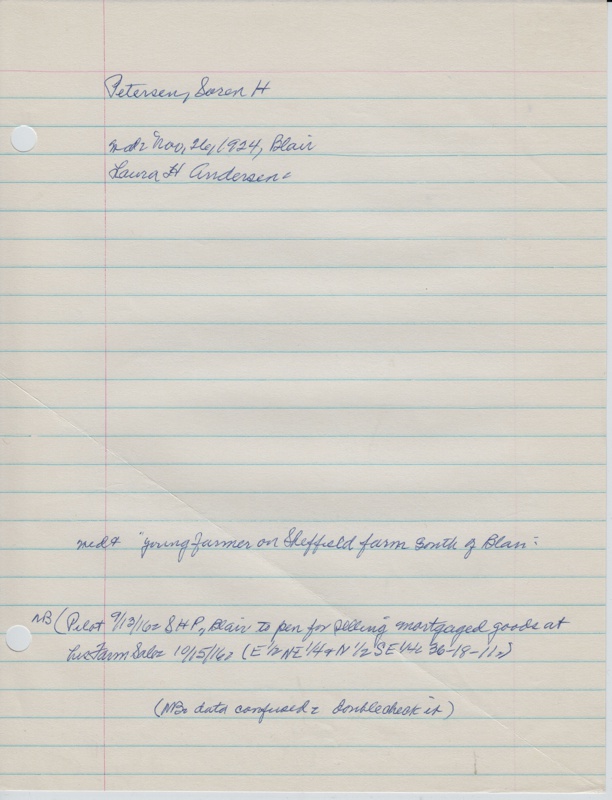 Petersen, Soren H
md: Nov, 26, 1924, Blair
Laura H Andersen:
"young farmer on Sheffield farm south of Blair:
NB (Pilot 9/13/16: S H P, Blair to pen for selling mortgaged goods at
his Farm Sale: 10/15/16: (E 1/2 NE 1/4 & N 1/2 SE 1/4: 36-18-11:)
(NB: data confused: doublecheck it)